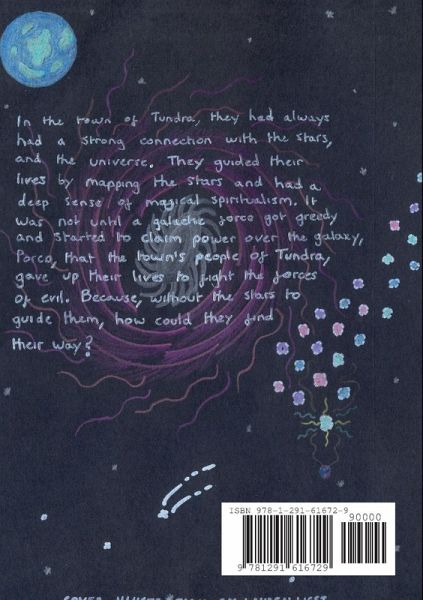 In the town of Tundra, they had always
had a strong connection with the stars,
and the universe. They guided their
lives by mapping the stars and had a
deep sense of magical spiritualism. It
was not until a galactic force got greedy
and started to claim power over the galaxy,
Porco, that the town's people of Tundra,
gave up their lives to fight the forces
of evil. Because, without the stars to
guide them, how could they find
their way?
ISBN 978-1-291-61672-9
90000
9 781291 616729
COVER